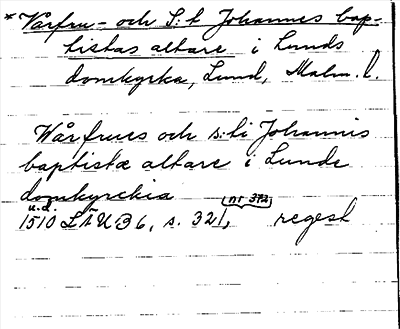 * Vårfru- och S:t Johannes bap-
tistas altare i Lunds
domkyrka, Lund, Malm. l.
Wårfrues och s:ti Johannis
baptistæ altare i Lunde
domkyrckia
u.d. nr 372
1510 LÄU 36, s. 321, regest